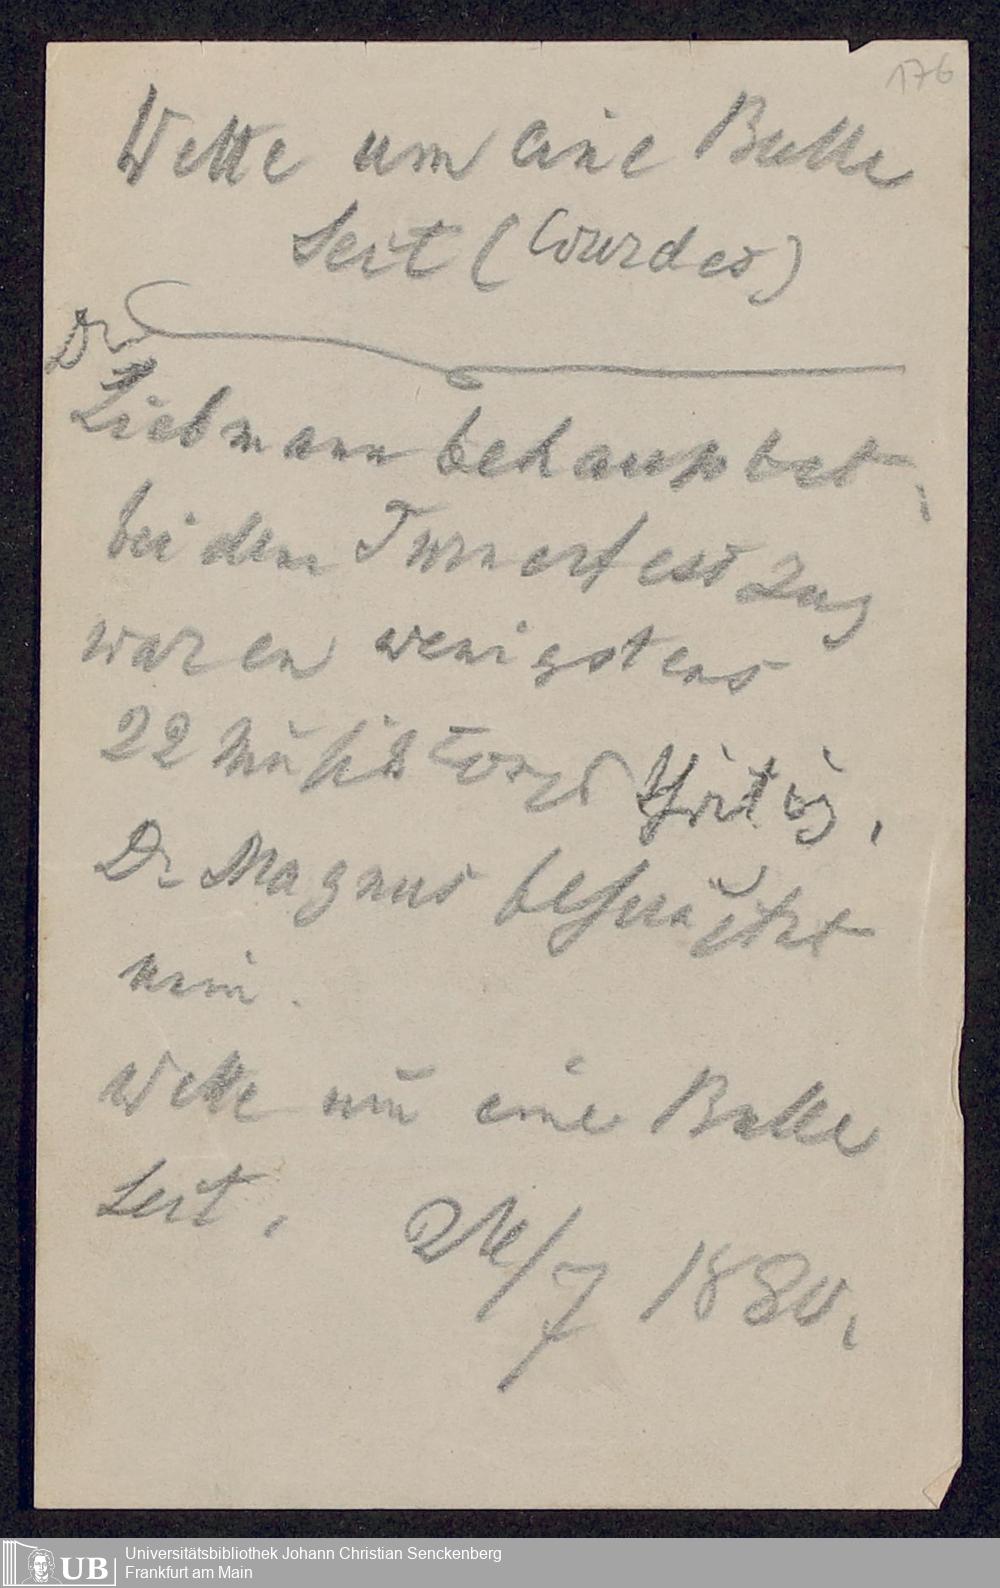 176
Wette um eine Bulle
Sect (Lourdes)
Dr
Liebmann behauptet,
bei dem Turnerfestzug
waren wenigstens
22 Musikcorps thätig,
Dr Magnus
nein.
Wette um eine Bulle
Sect. 24/7 1880.
UB
Universitätsbibliothek Johann Christian Senckenberg
Frankfurt am Main